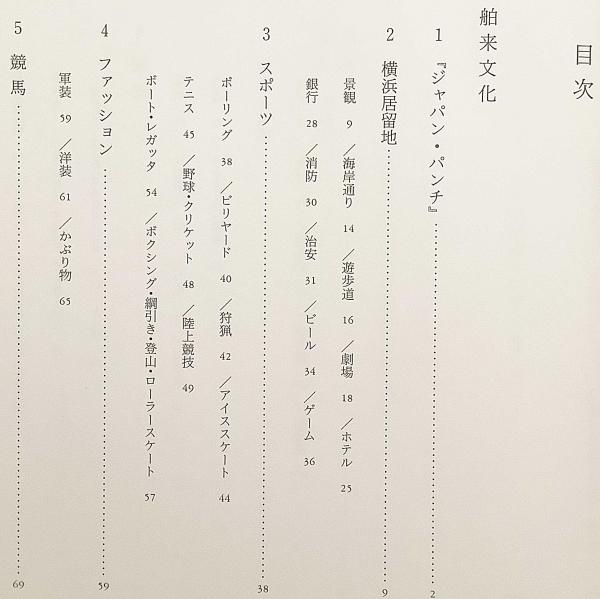 目次
舶来文化
1 『ジャパン・パンチ』 2
2 横浜居留地 9
景観 9 /海岸通り 14 /遊歩道 16 /劇場 18 /ホテル 25
銀行 28 /消防 30 /治安 31 /ビール 34 /ゲーム 36
3 スポーツ 38
ボーリング 38 /ビリヤード 40 /狩猟 42 /アイススケート 44
テニス 45 /野球・クリケット 48 /陸上競技 49
ボート・レガッタ 54 /ボクシング・綱引き・登山・ローラースケート 57
4 ファッション 59
軍装 59 /洋装 61 /かぶり物 65
5 競馬 69